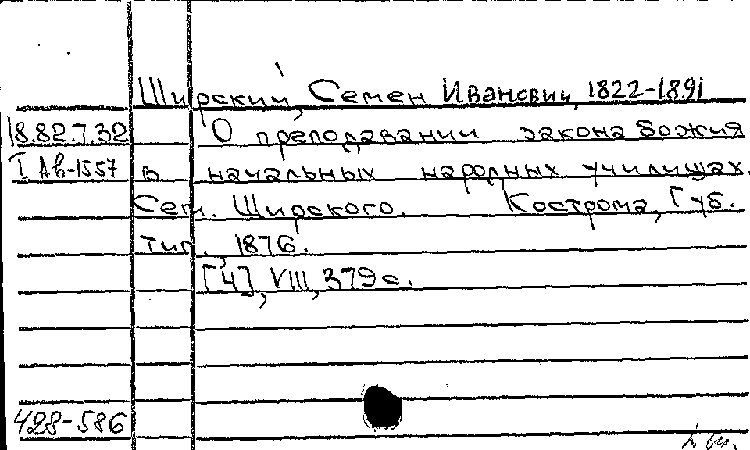 Ширский, Семен Иванович, 1822-1891
18.82.7.32 О преподавании закона Божия
I Ав-1557 в начальных народных училищах.
Сем. Ширского. Кострома, Губ.
тип., 1876.
[4], VIII, 379 с.
428-586